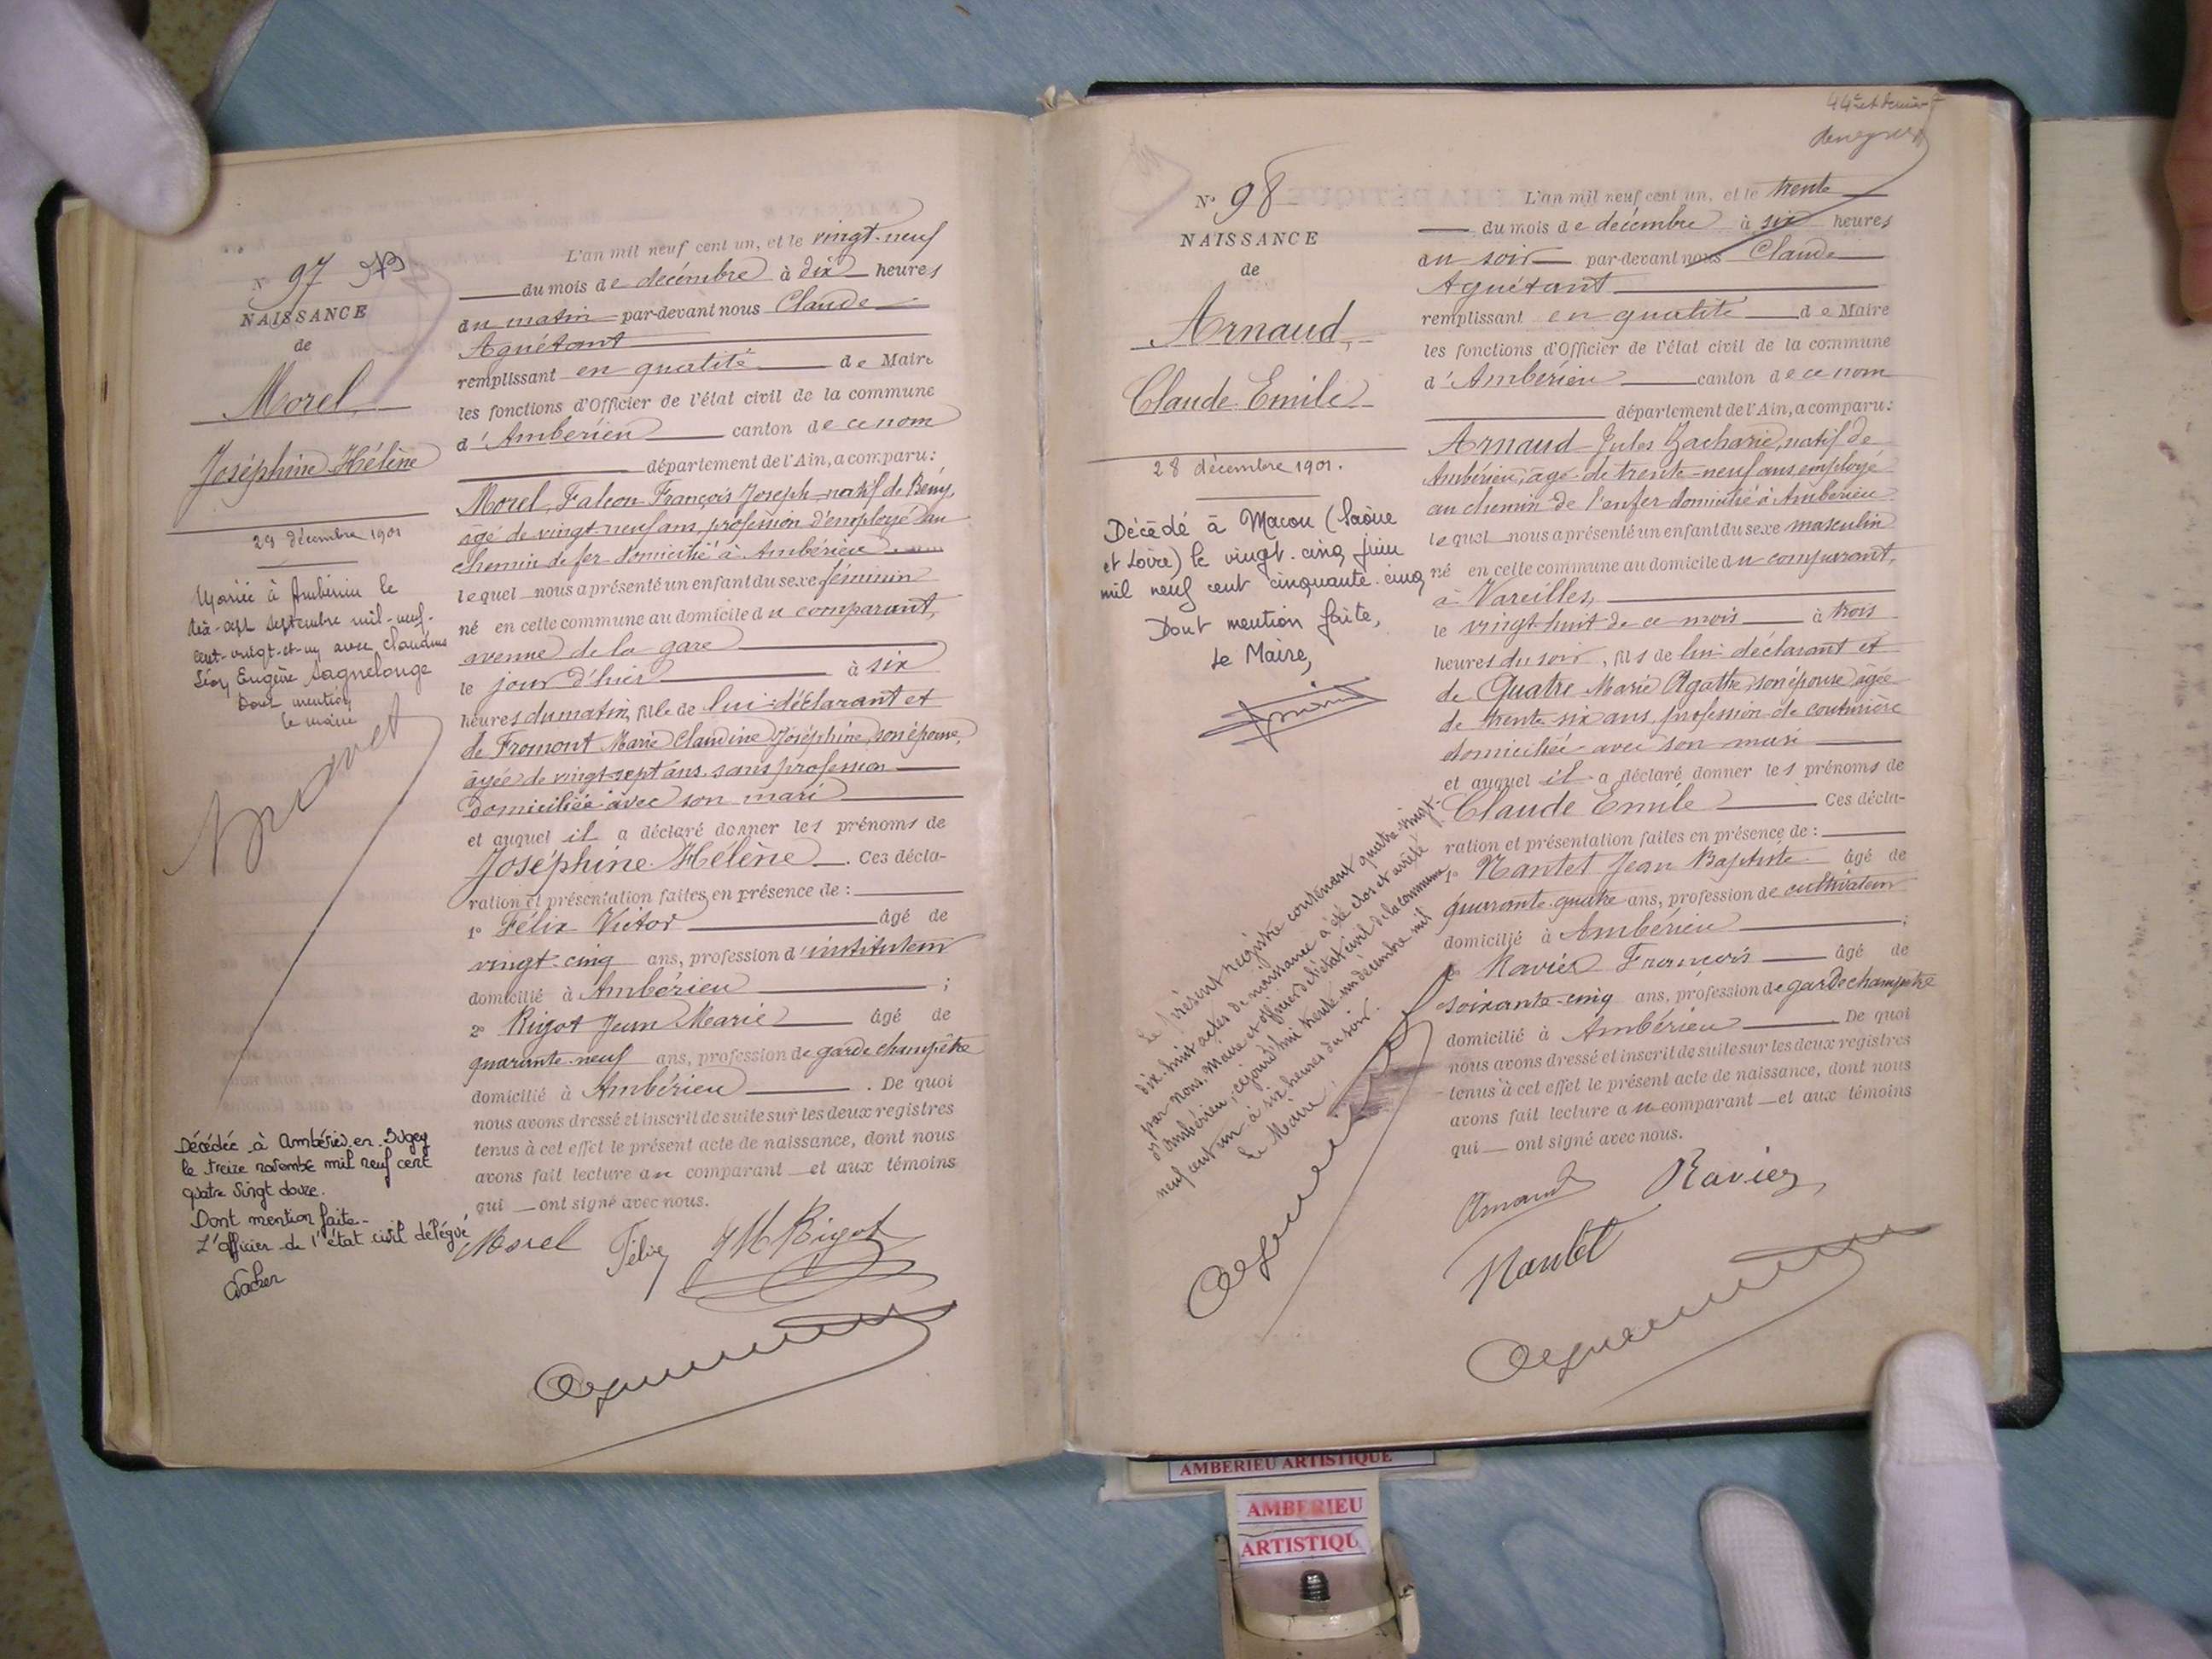 N° 97
NAISSANCE
de
Morel
Joséphine Hélène
29 décembre 1901
Mariée à Ambérieu le
dix-sept septembre mil-neuf-
cent-vingt-et-un avec Claudius
Léon Eugène Sagnelonge
Dont mention
le maire
Décédée à Ambérieu-en-Bugey
le treize novembre mil neuf cent
quatre vingt douze.
Dont mention faite-
L'officier de l'état civil délégué
L'an mil neuf cent un, et le vingt-neuf
du mois de décembre à dix heures
du matin par-devant nous Claude
Aguétant
remplissant en qualité de Maire
les fonctions d'Officier de l'état civil de la commune
d'Ambérieu canton de ce nom
département de l'Ain, a comparu:
Morel, Falcon François Joseph natif de Bény,
âgé de vingt-neuf ans, profession d'employé au
chemin de fer domicilié à Ambérieu
lequel nous a présenté un enfant du sexe féminin
né en cette commune au domicile du comparant,
avenue de la gare
le jour d'hier à six
heures du matin, fille de lui déclarant et
de Fromont Marie Claudine Joséphine, son épouse,
âgée de vingt-sept ans, sans profession
domiciliée avec son mari
et auquel il a déclaré donner les prénoms de
Joséphine Hélène. Ces décla-
ration et présentation faites en présence de :
1° Félix Victor âgé de
vingt-cinq ans, profession d'instituteur
domicilié à Ambérieu ;
2° Rigot Jean Marie âgé de
quarante-neuf ans, profession de garde champêtre
domicilié à Ambérieu. De quoi
nous avons dressé et inscrit de suite sur les deux registres
tenus à cet effet le présent acte de naissance, dont nous
avons fait lecture au comparant et aux témoins
qui ont signé avec nous.
Morel Félix JM Rigot
44e et dernier
N° 98
NAISSANCE
de
Arnaud,
Claude Emile
28 décembre 1901.
Décédé à Macon (Saône
et Loire) le vingt-cinq juin
mil neuf cent cinquante-cinq
Dont mention faite,
Le Maire,
Le présent registre contenant quatre-vingt-
dix-huit actes de naissance a été clos et arrêté
par nous, Maire et officier de l'état civil de la commune
d'Ambérieu, cejourd'hui trente un décembre mil
neuf cent un à six heures du soir.
Le Maire,
L'an mil neuf cent un, et le trente
du mois de décembre à six heures
du soir par-devant nous Claude
Aguétant
remplissant en qualité de Maire
les fonctions d'Officier de l'état civil de la commune
d'Ambérieu canton de ce nom
département de l'Ain, a comparu:
Arnaud Jules Zacharie, natif de
Ambérieu, âgé de trente-neuf ans employé
au chemin de l'enfer domicilié à Ambérieu
lequel nous a présenté un enfant du sexe masculin
né en cette commune au domicile du comparant,
à Vareilles,
le vingt huit de ce mois à trois
heures du soir, fils de lui déclarant et
de Quatre Marie Agathe, son épouse âgée
de trente-six ans, profession de couturière
domiciliée avec son mari
et auquel il a déclaré donner les prénoms de
Claude Emile Ces décla-
ration et présentation faites en présence de :
1° Nantet Jean Baptiste âgé de
quarante-quatre ans, profession de cultivateur
domicilié à Ambérieu ;
2° Ravier François âgé de
soixante-cinq ans, profession de garde champêtre
domicilié à Ambérieu De quoi
nous avons dressé et inscrit de suite sur les deux registres
tenus à cet effet le présent acte de naissance, dont nous
avons fait lecture au comparant et aux témoins
qui ont signé avec nous.
Arnaud Ravier
Nantet
AMBERIEU ARTISTIQUE
AMBERIEU
ARTISTIQU